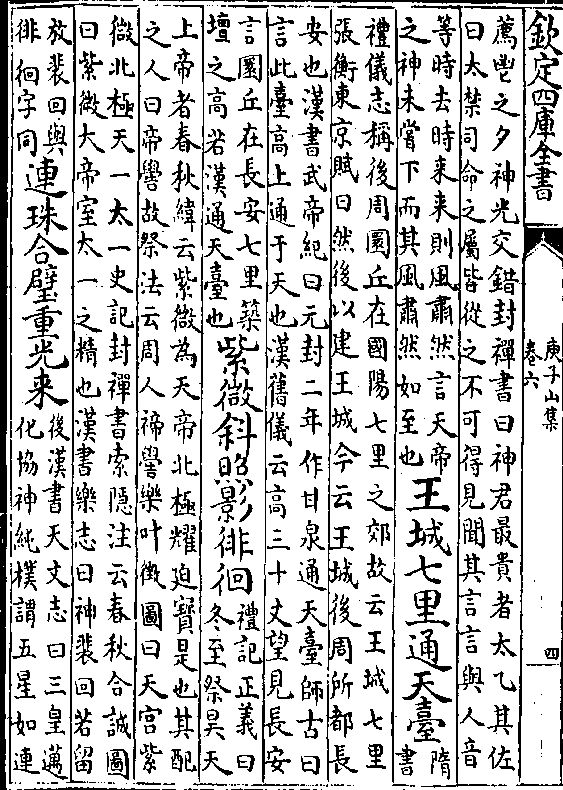 欽定四庫全書
庚子山集
卷六
四
薦鬯之夕神光交錯封禪書曰神君最貴者太乙其佐
曰太禁司命之屬皆從之不可得見聞其言言與人音
等時去時来来則風肅然言天帝
之神未嘗下而其風肅然如至也
王城七里通天臺
隋
書
禮儀志稱後周圜丘在國陽七里之郊故云王城七里
張衡東京賦曰然後以建王城今云王城後周所都長
安也漢書武帝紀曰元封二年作甘泉通天臺師古曰
言此臺高上通于天也漢舊儀云高三十丈望見長安
言圜丘在長安七里築
壇之高若漢通天臺也
紫微斜照影徘徊
禮記正義曰
冬至祭昊天
上帝者春秋緯云紫微為天帝北極耀迫寶是也其配
之人曰帝嚳故祭法云周人禘嚳樂叶徵圖曰天宫紫
微北極天一太一史記封禪書索隱注云春秋合誠圖
曰紫微大帝室太一之精也漢書樂志曰神裴回若留
放裴回與
徘徊字同
連珠合璧重光来
後漢書天文志曰三皇邁
化協神純樸謂五星如連